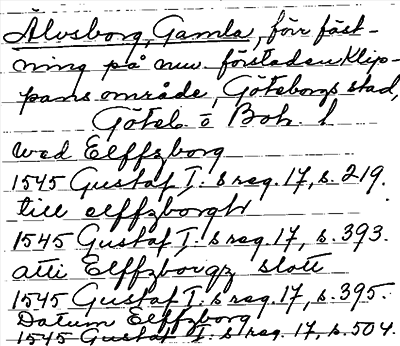 Älvsborg, Gamla, förr fäst-
ning på nuv. förstaden Klip-
pans område, Göteborgs stad,
Göteb. o Boh. l
wed Elffzborg
1545 Gustaf I:s reg. 17, s. 219.
till elffzborgh
1545 Gustaf I:s reg. 17, s. 393.
atti Elffzborgz slott
1545 Gustaf I:s reg. 17, s. 395.
Datum Elffzborg
1545 Gustaf I:s reg. 17, s. 504.